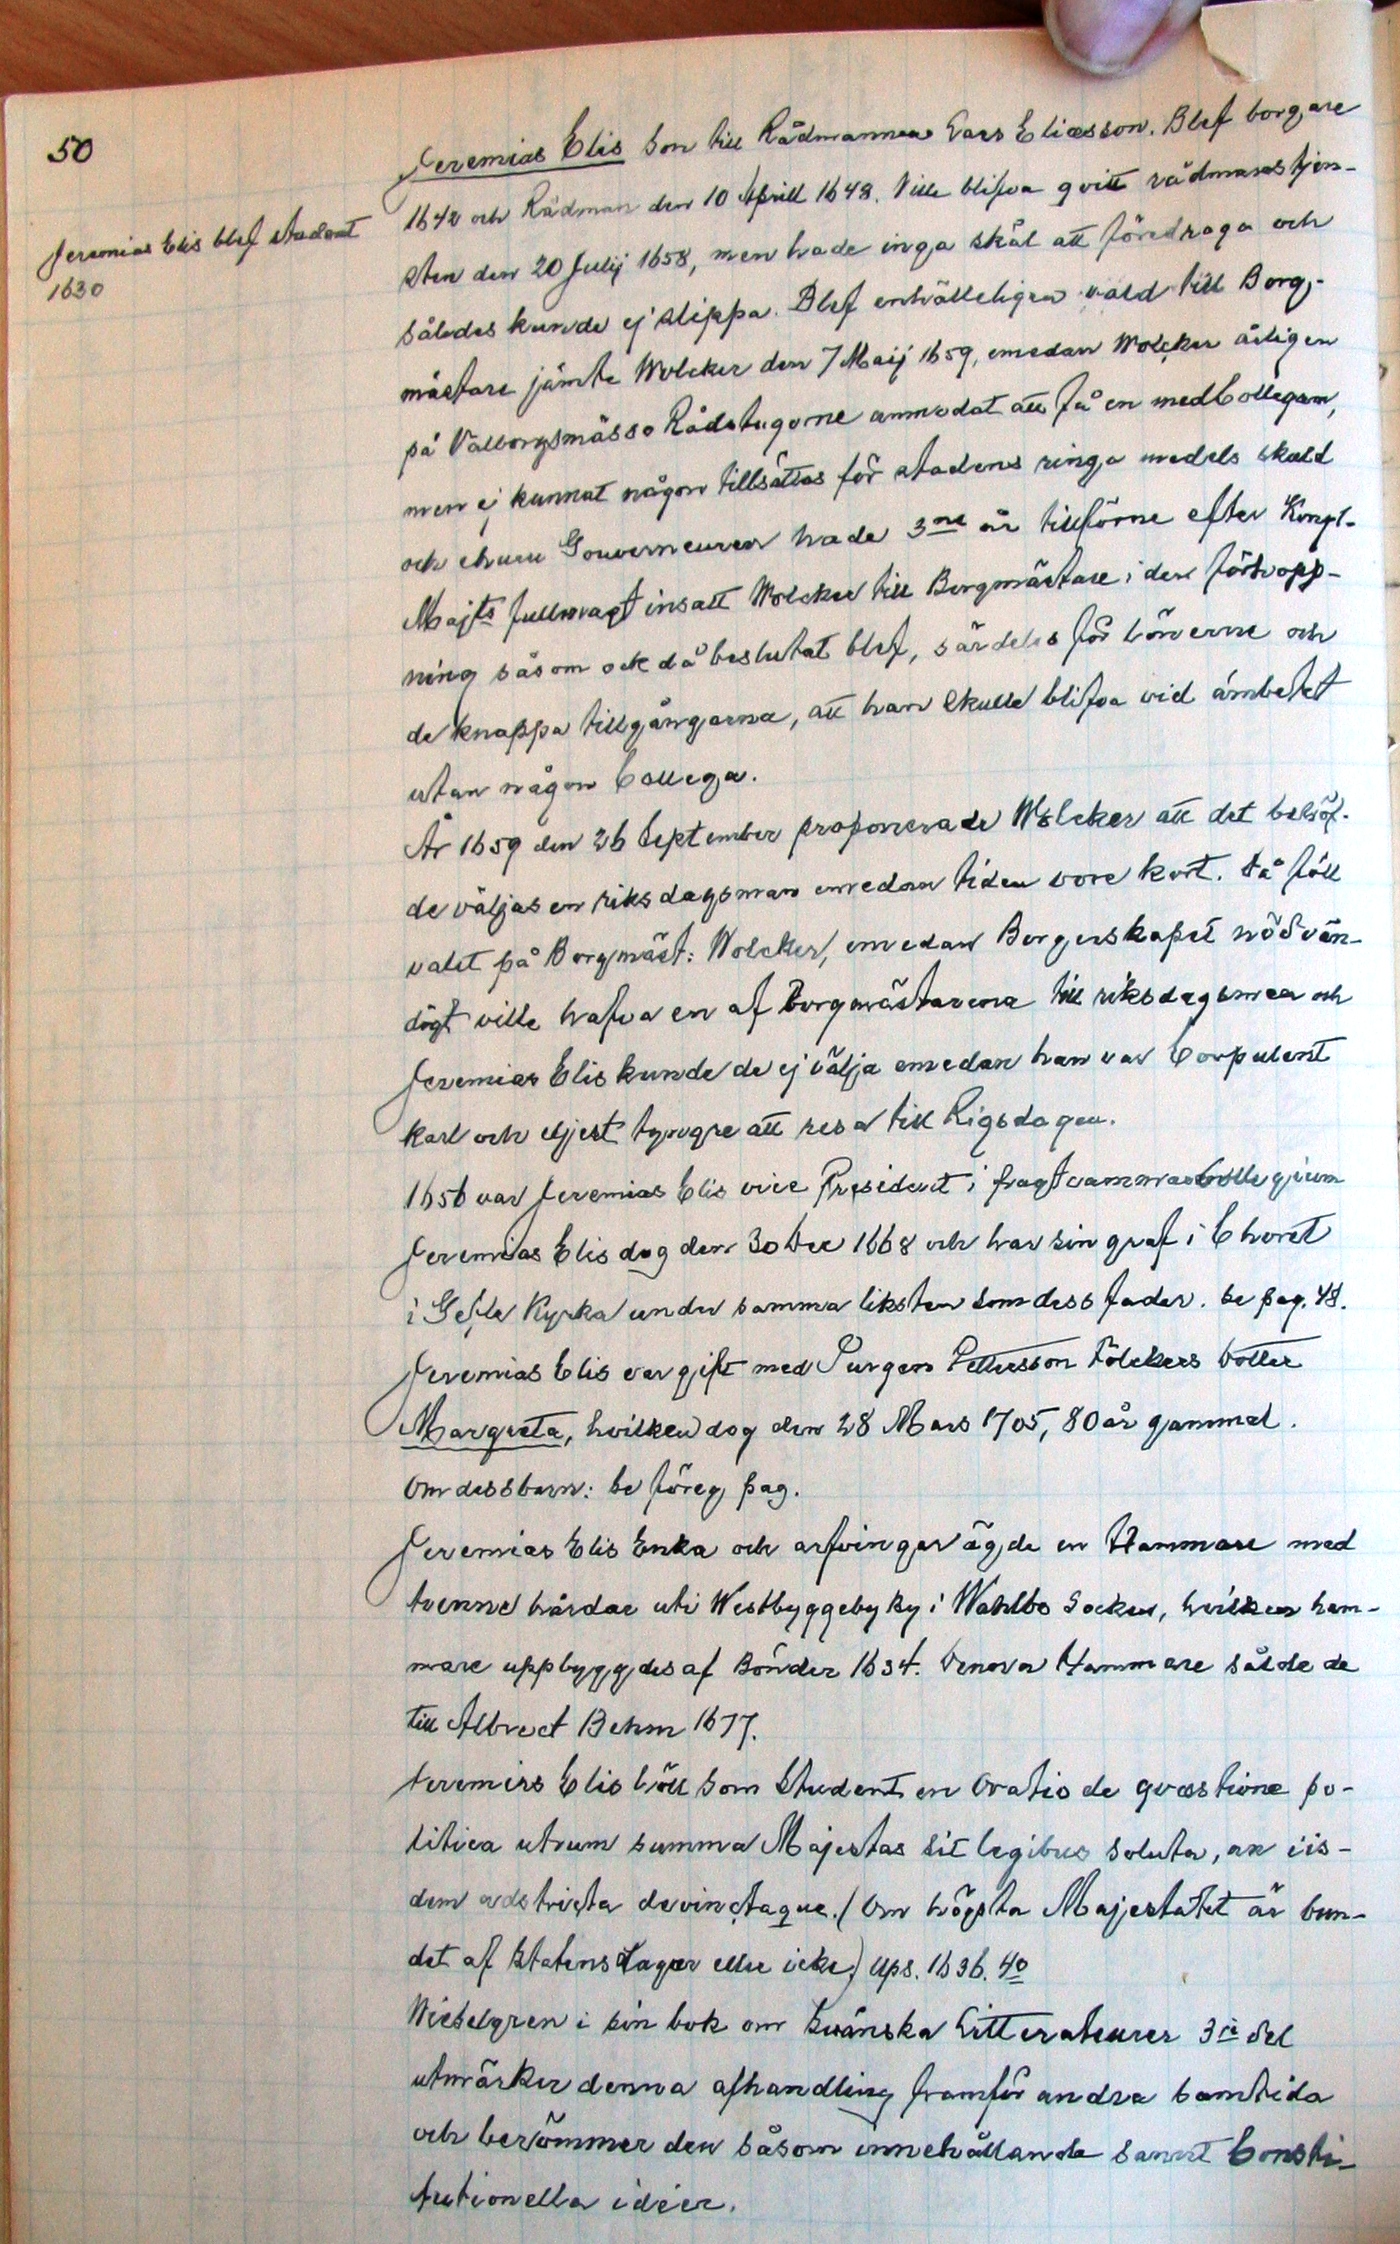 50
Jeremias Elis blef student
1630
Jeremias Elis Son till Rådmannen Lars Eliæsson. Blef borgare
1642 och Rådman den 10 Aprill 1648. Ville blifva qvitt rådmanstjen-
sten den 20 Julij 1658, men hade inga skäl att föredraga och
således kunde ej slippa. Blef enhälleligen vald till Borg-
mästare jämte Wolcker den 7 Maij 1659, emedan Wolcker årligen
på Valborgsmässo Rådstugorne anmodat att få en medCollegam,
men ej kunnat någon tillsättas för stadens ringa medels skuld
och ehuru Gouverneuren hade 3ne år tillförne efter Kongl.
Majts fullmagt insatt Wolcker till Borgmästare i den förhopp-
ning såsom ock då beslutat blef, särdeles för lönerne och
de knappa tillgångarna, att han skulle blifva vid ämbetet
utan någon Collega.
År 1659 den 26 September proponerade Wolcker att det behöf-
de väljas en riksdagsman emedan tiden vore kort. Då föll
valet på Borgmäst: Wolcker, emedan Borgerskapet nödvän-
digt ville hafva en af Borgmästarena till riksdagsman och
Jeremias Elis kunde de ej välja emedan han var Corpulent
karl och eljest tyngre att resa till Rigsdagen.
1656 var Jeremias Elis vice President i fragtcammarCollegium
Jeremias Elis dog den 30 Dec 1668 och har sin graf i Choret
i Gefle Kyrka under samma liksten som dess fader. Se pag. 48.
Jeremias Elis var gift med Jurgen Pettersson Fölckers Dotter
Margreta, hvilken dog den 28 Mars 1705, 80 år gammal.
Om dess barn: Se föreg. pag.
Jeremias Elis Enka och arfvingar ägde en Hammare med
tvenne härdar uti Westbyggeby By i Wahlbo Socken, hvilken ham-
mare uppbyggdes af Bönder 1634. Denna Hammare sålde de
till Albrect Behm 1677.
Jeremias Elis höll som Student en Oratio de qvæstione po-
litica utrum summa Majestas sit legibus soluta, an iis-
dem adstricta devinctaque. (Om högsta Majestätet är bun-
det af Statens Lagar eller icke) Ups. 1636. 4o
Wieselgren i sin bok om Swänska Litteraturer 3je del
utmärker denna afhandling framför andra samtida
och berömmer den såsom innehållande sannt Consti-
tutionella idéer.